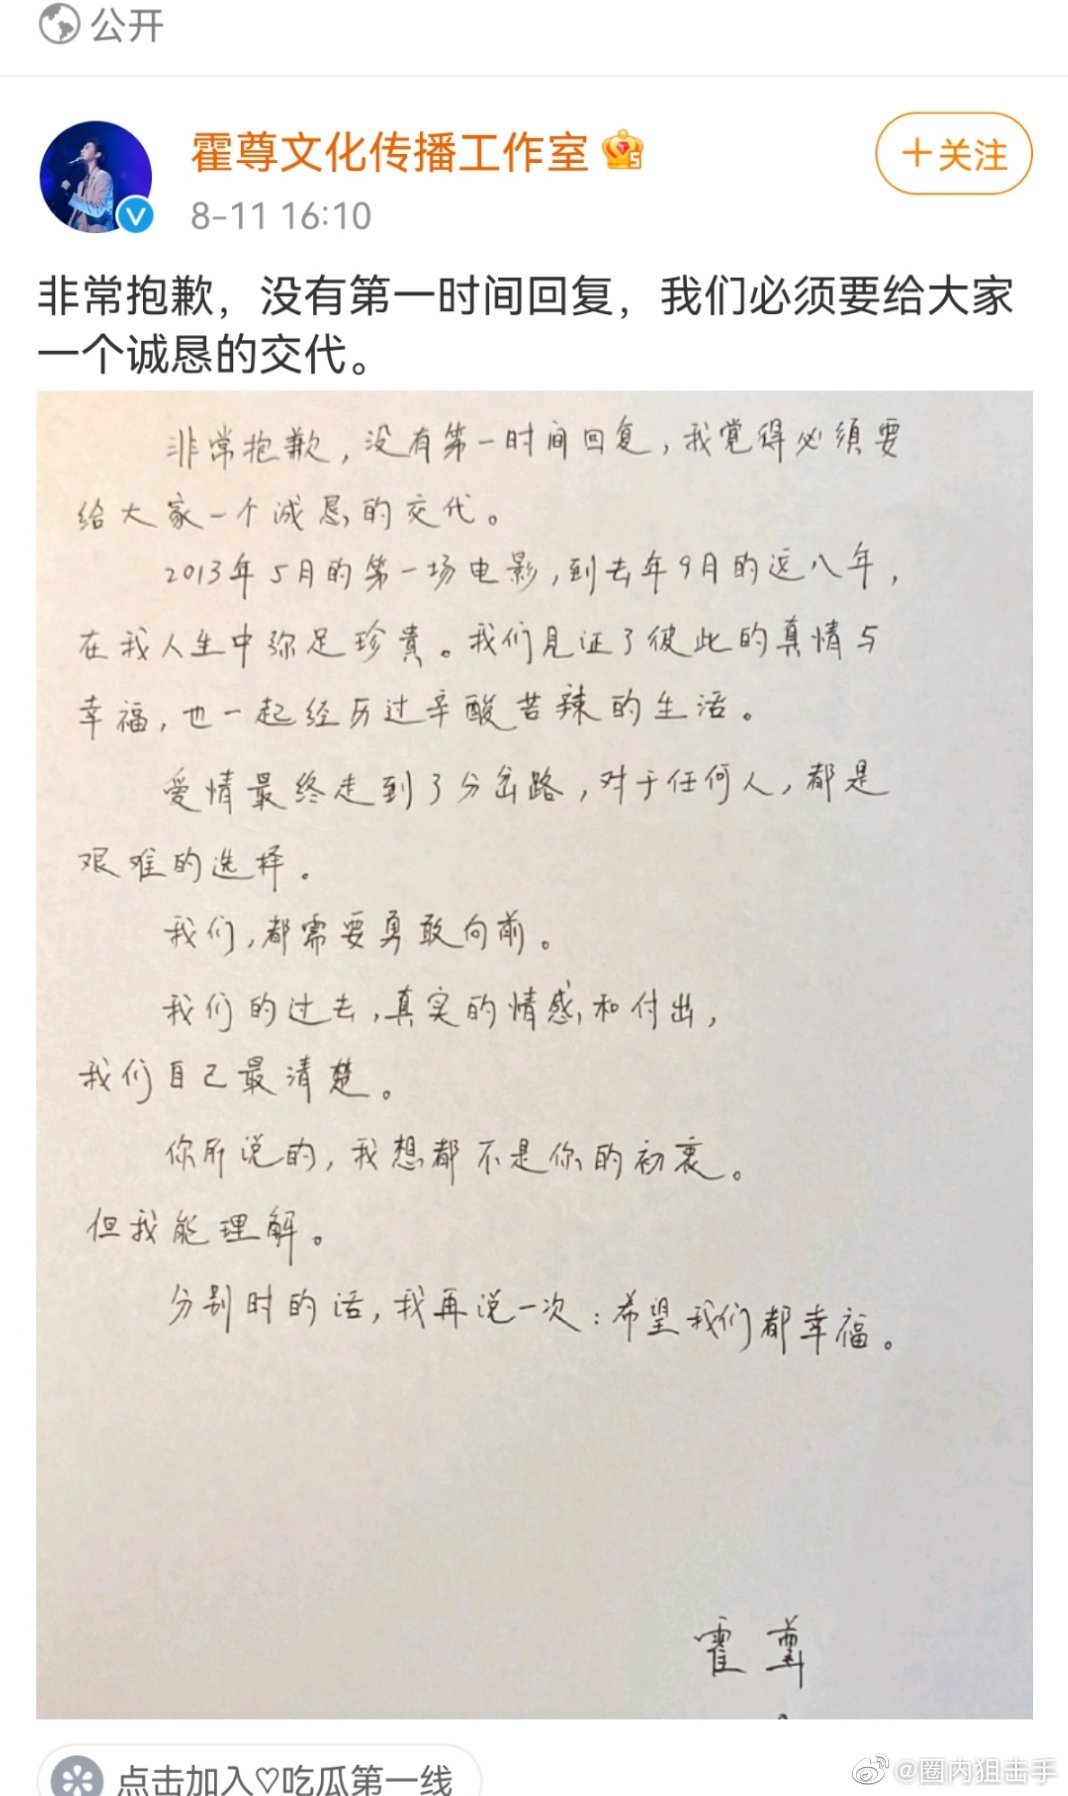 公开
霍尊文化传播工作室
5
8-11 16:10
+关注
非常抱歉，没有第一时间回复，我们必须要给大家
一个诚恳的交代。
非常抱歉，没有第一时间回复，我覺得必须要
给大家一个诚恳的交代。
2013年5月的第一场电影，到去年9月的近八年，
在我人生中弥足珍貴。我们见证了彼此的真情与
幸福，也一起经历过辛酸苦辣的生活。
爱情最终走到了分岔路，对于任何人，都是
艰难的选择。
我们，都需要勇敢向前。
我们的过去，真实的情感和付出，
我们自己最清楚。
你所说的，我想都不是你的初衷。
但我能理解。
分别时的话，我再说一次：希望我们都幸福。
霍尊
点击加入♡吃瓜第一线
@圈内狙击手